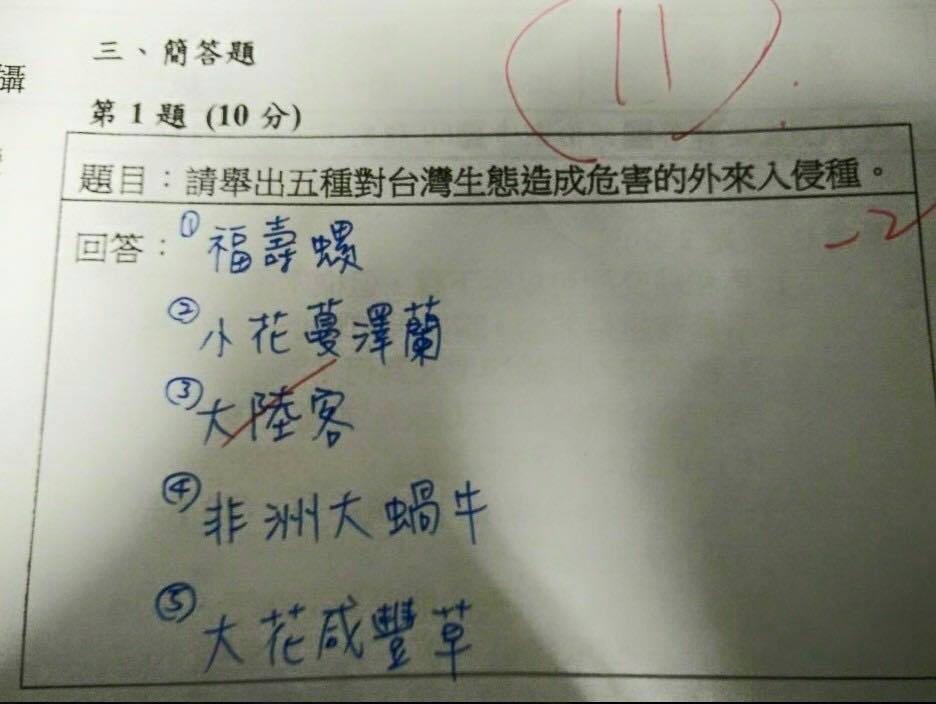 攝
11
三、簡答題
第 1 題 (10 分)
題目：請舉出五種對台灣生態造成危害的外來入侵種。
-2
回答：①福壽螺
②小花蔓澤蘭
③大陸客
④非洲大蝸牛
⑤大花咸豐草